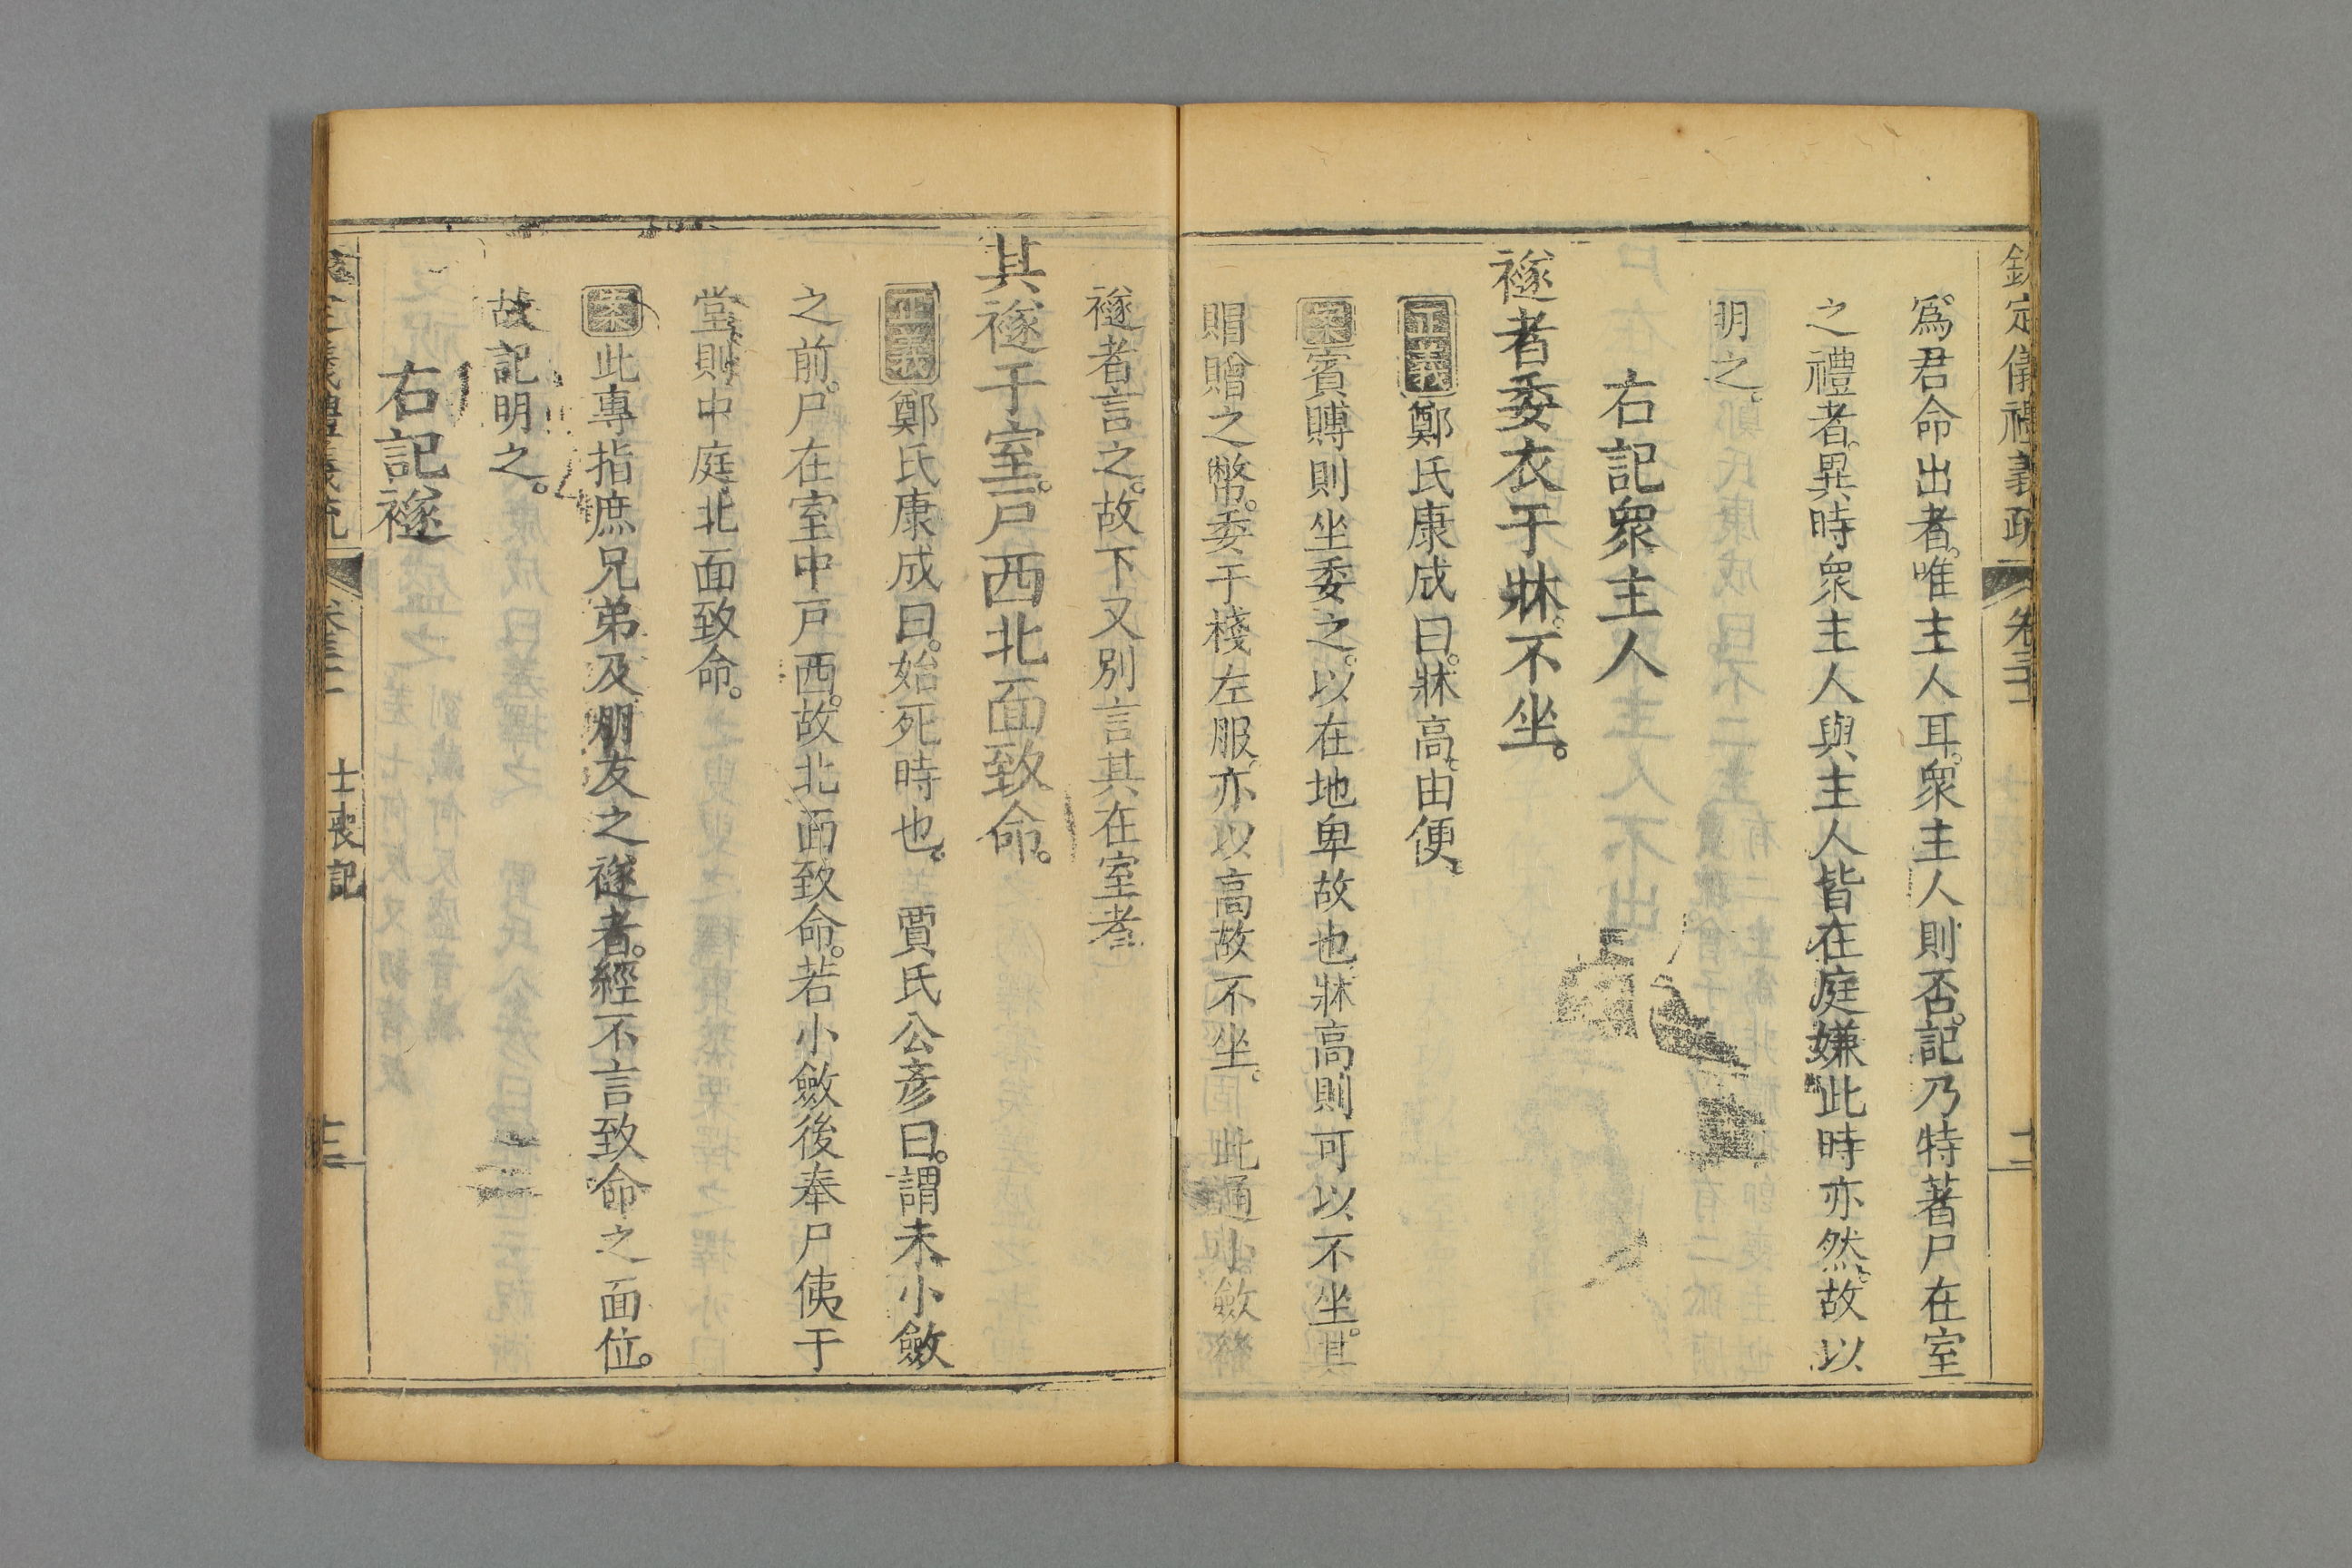 欽定儀禮義疏 卷三十二 十二
爲君命出者。唯主人耳。衆主人則否。記乃特著尸在室
之禮者。異時衆主人與主人皆在庭嫌此時亦然。故以
明之。
右記衆主人
襚者委衣于牀。不坐。
正義鄭氏康成曰。牀高。由便。
案賓賻則坐委之。以在地卑故也牀高則可以不坐。其
賵贈之幣。委于棧左服。亦以高故不坐。此通小斂
襚者言之。故下又別言其在室者
其襚于室。戸西北面致命。
正義鄭氏康成曰。始死時也。 賈氏公彦曰。謂未小斂
之前。尸在室中戸西。故北面致命。若小斂後奉尸侇于
堂。則中庭北面致命。
案此專指庶兄弟及朋友之襚者。經不言致命之面位。
故記明之。
右記襚
士喪記